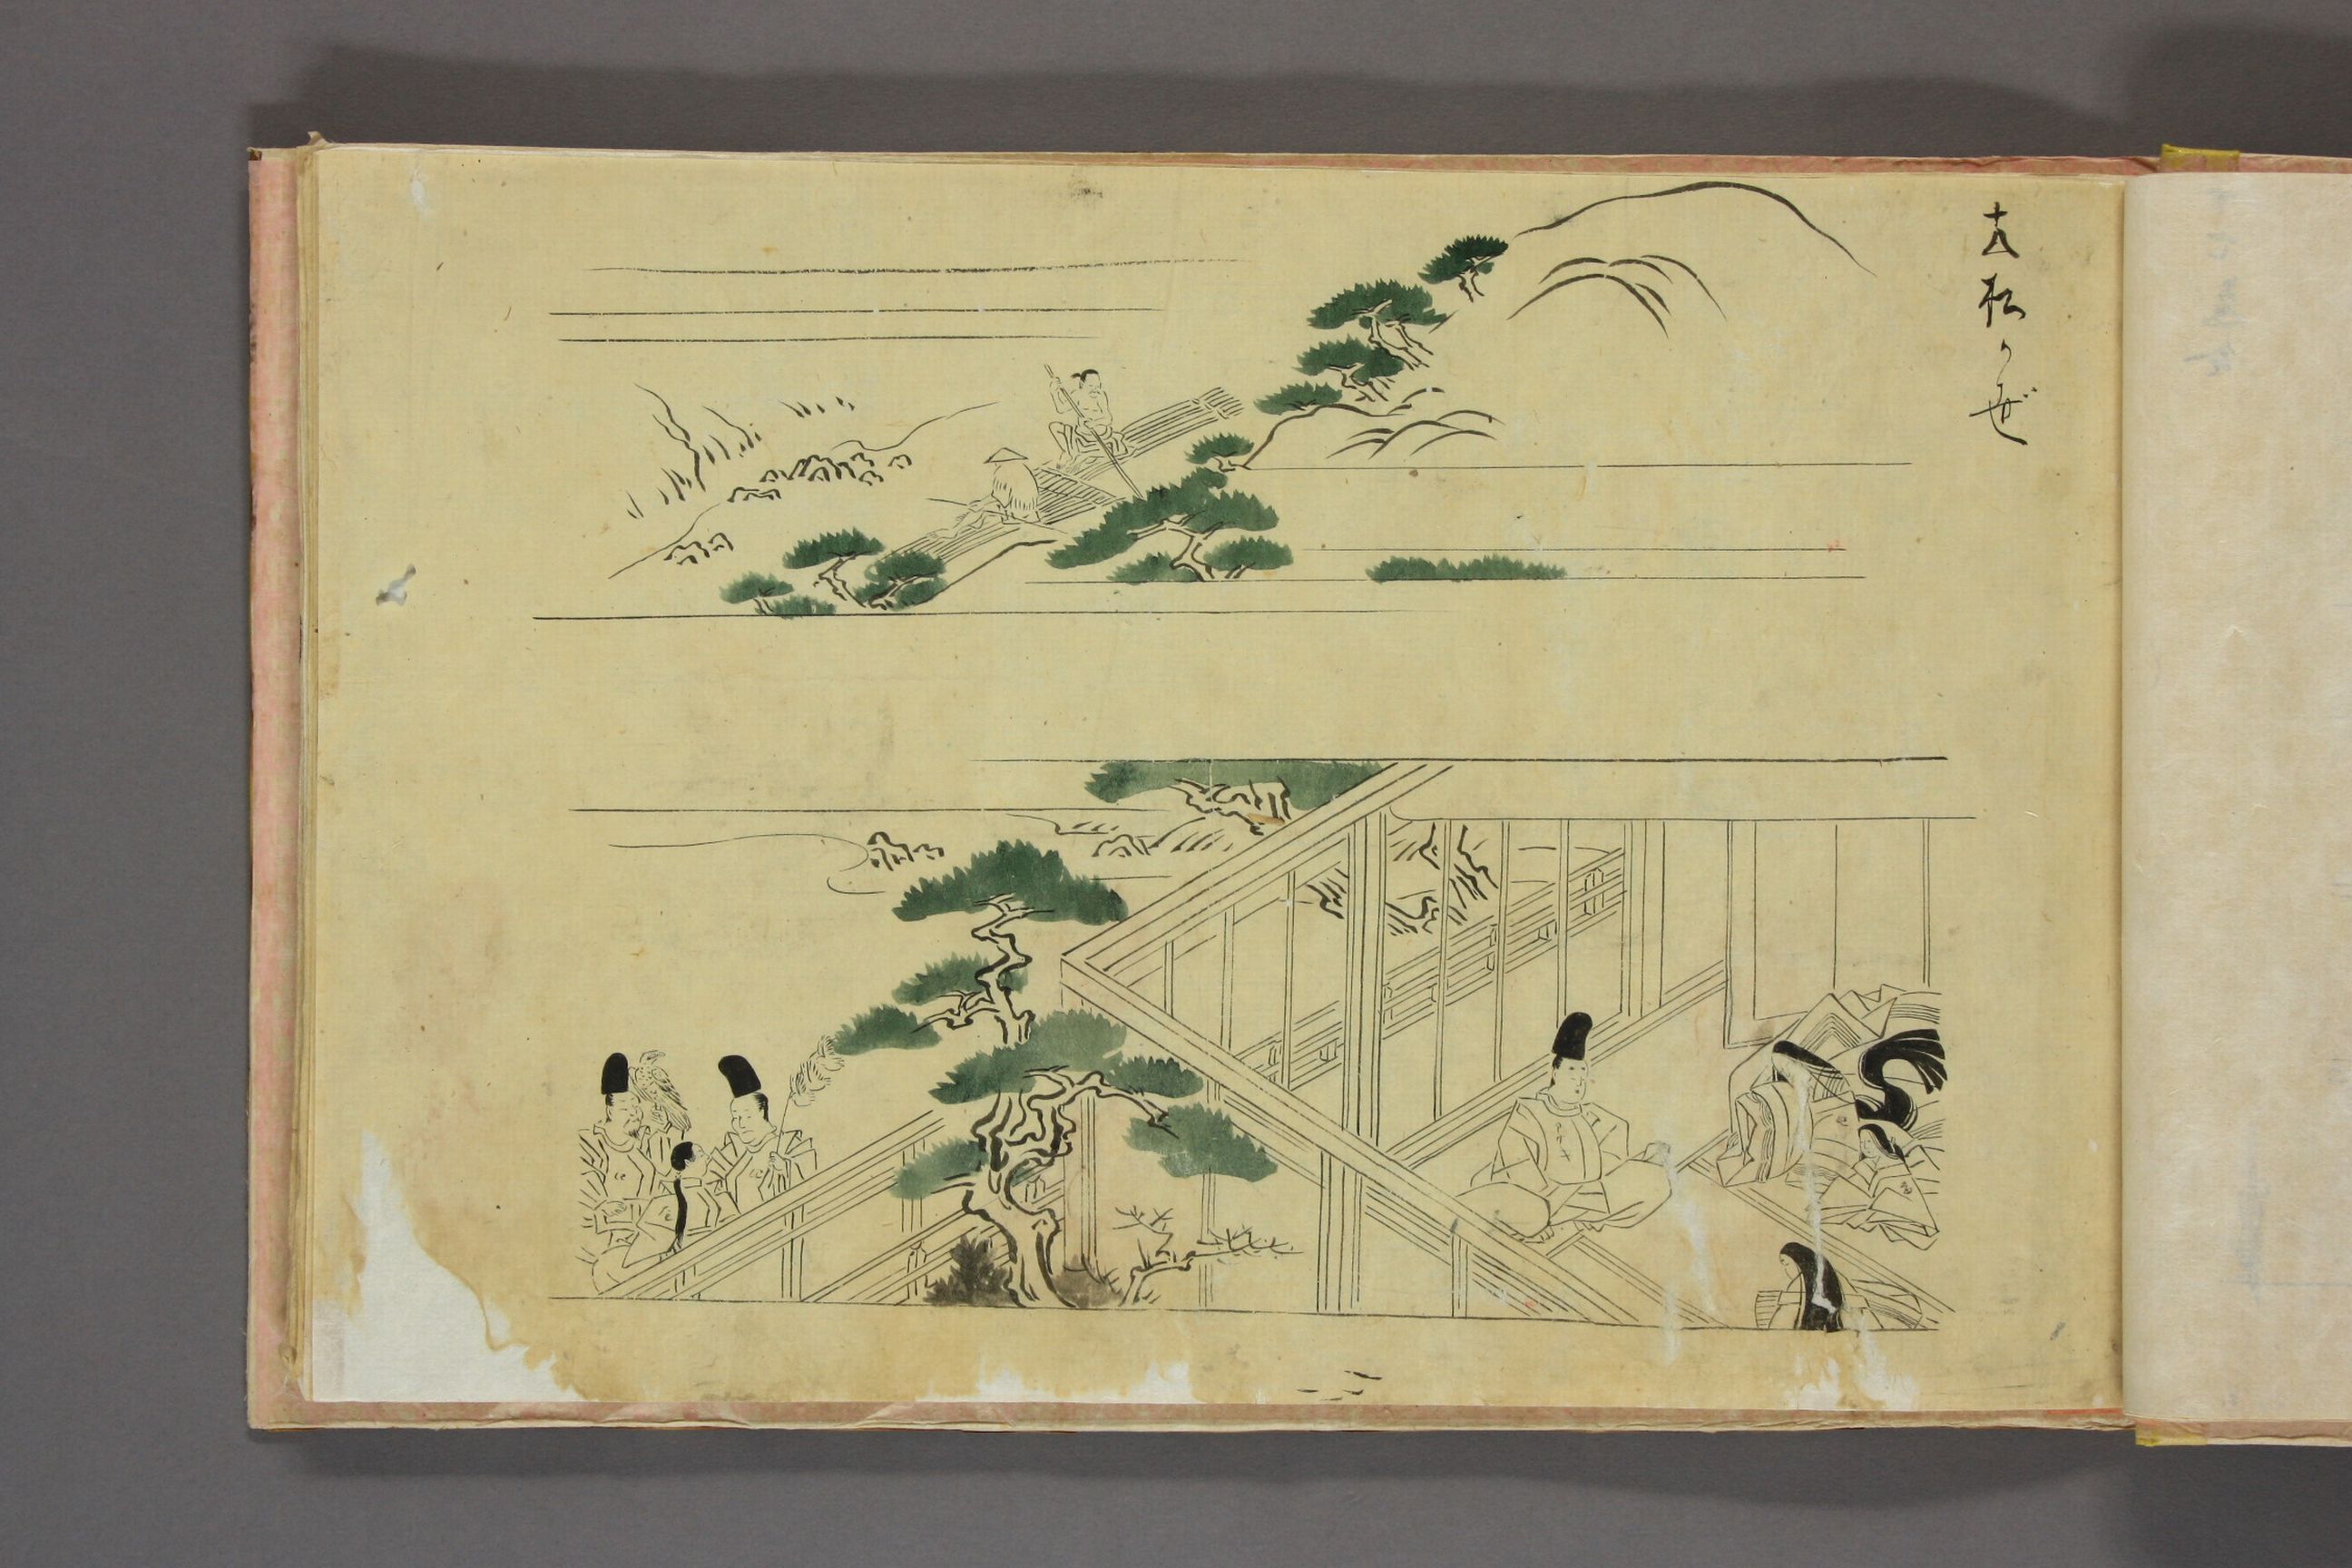 十八松かぜ